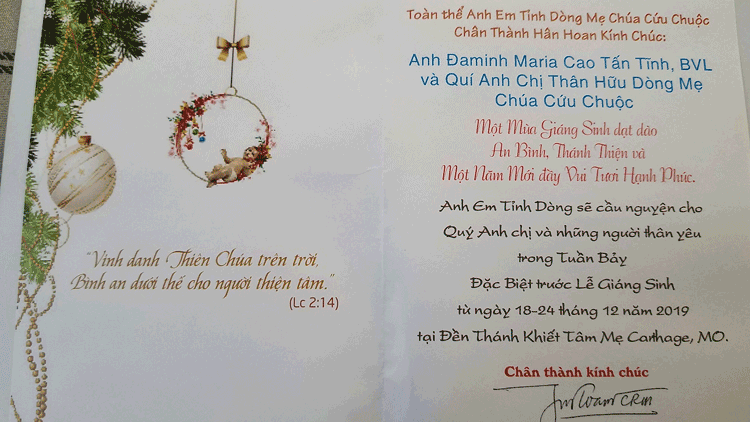 "Vinh danh Thiên Chúa trên trời,
Bình an dưới thế cho người thiện tâm."
(Lc 2:14)
Toàn thể Anh Em Tỉnh Dòng Mẹ Chúa Cứu Chuộc
Chân Thành Hân Hoan Kính Chúc:
Anh Đaminh Maria Cao Tấn Tĩnh, BVL
và Quí Anh Chị Thân Hữu Dòng Mẹ
Chúa Cứu Chuộc
Một Mùa Giáng Sinh dạt dào
An Bình, Thánh Thiện và
Một Năm Mới đầy Vui Tươi Hạnh Phúc.
Anh Em Tỉnh Dòng sẽ cầu nguyện cho
Quý Anh chị và những người thân yêu
trong Tuần Bảy
Đặc Biệt trước Lễ Giáng Sinh
từ ngày 18-24 tháng 12 năm 2019
tại Đền Thánh Khiết Tâm Mẹ Carthage, MO.
Chân thành kính chúc
CRM